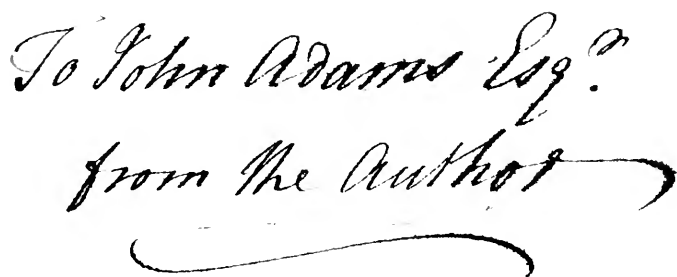 To John Adams Esqr.
from the Author